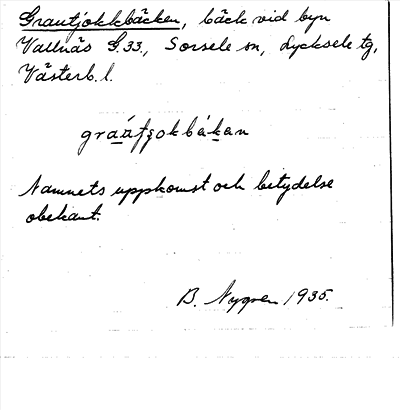 Grautjokkbäcken, bäck vid byn
Vallnäs G.33, Sorsele sn, Lycksele tg,
Västerb. l.
Namnets uppkomst och betydelse
obekant.
B. Nygren 1935.